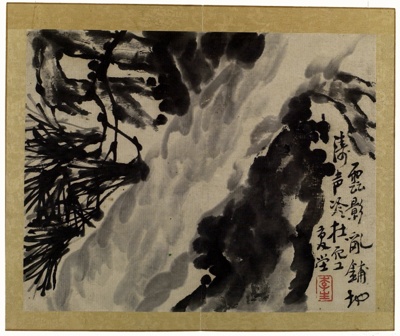 雲影亂鋪地
濤声寒在空
復堂